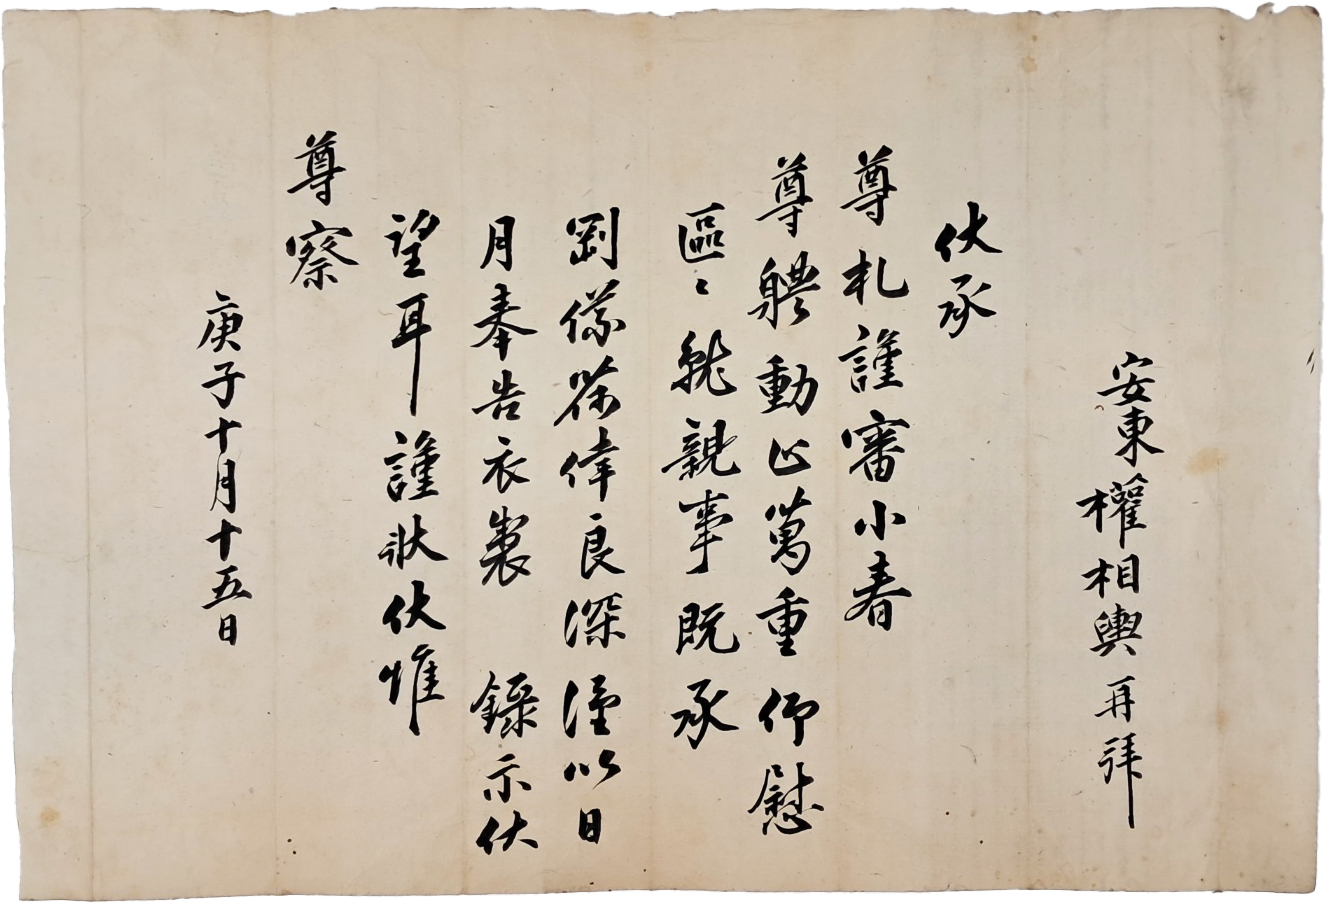 安東權相輿再拜
伏承
尊札謹審小春
尊軆動止萬重仰慰
區〻就親事既承
剛儀榮倖良深謹以日
月奉告衣製 錄示伏
望耳謹狀伏惟
尊察
庚子十月十五日